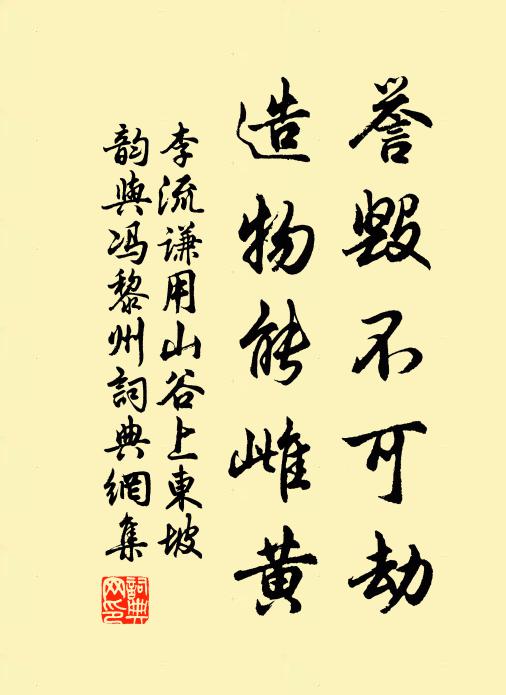 誉毁不可劫
造物能雌黄
李流谦用山谷上東坡
韵與冯黎州詞典網集